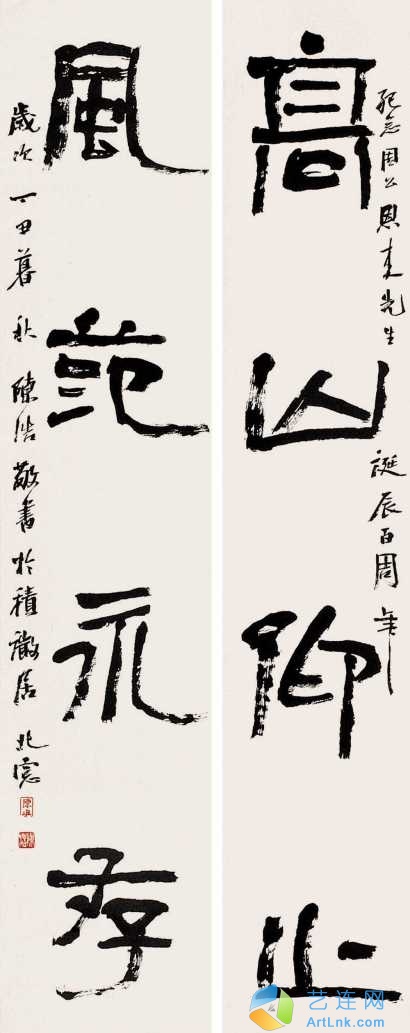 紀念周公恩来先生誕辰百周年
高山仰止
風范永存
歲次丁丑暮秋陳浩敬書於積微居北窗
艺连网
ArtLnk.com